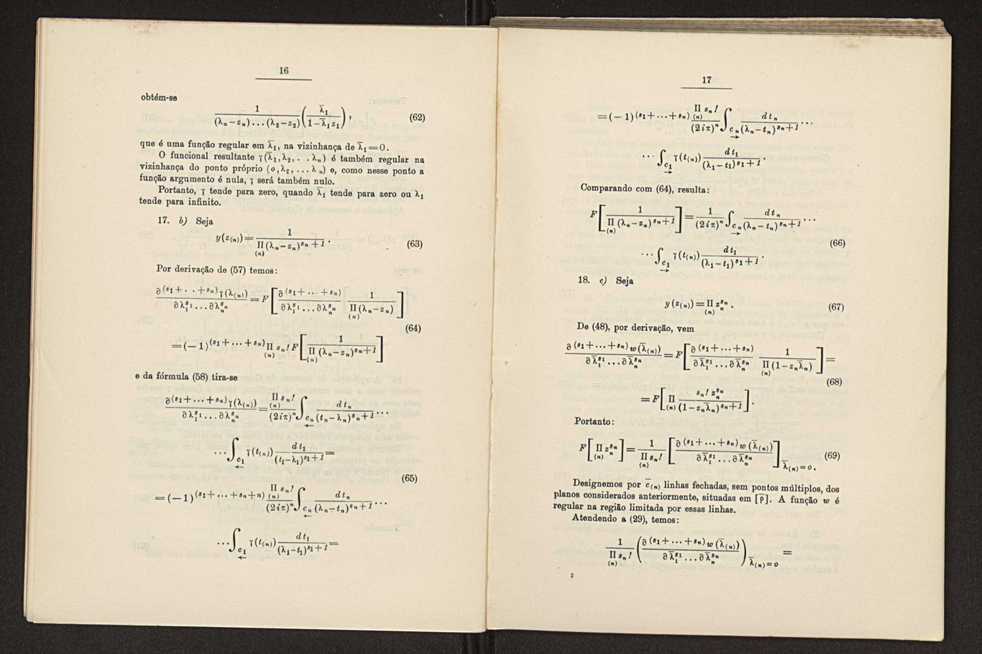 16
obtém-se
1/((λₙ−zₙ)...(λ₂−z₂)) (λ̄₁/(1−λ̄₁z₁)), (62)
que é uma função regular em λ̄₁, na vizinhança de λ̄₁=0.
O funcional resultante γ(λ̄₁,λ₂,. . λₙ) é também regular na
vizinhança do ponto próprio (o,λ₂,... λₙ) e, como nesse ponto a
função argumento é nula, γ será também nulo.
Portanto, γ tende para zero, quando λ̄₁ tende para zero ou λ₁
tende para infinito.
17. b) Seja
y(z₍ₙ₎)= 1/(Π₍ₙ₎(λₙ−zₙ)^{sₙ+1}). (63)
Por derivação de (57) temos:
∂^{(s₁+...+sₙ)}γ(λ₍ₙ₎)/(∂λ₁^{s₁}...∂λₙ^{sₙ}) = F[∂^{(s₁+...+sₙ)}/(∂λ₁^{s₁}...∂λₙ^{sₙ}) 1/(Π₍ₙ₎(λₙ−zₙ))]
(64)
=(−1)^{(s₁+...+sₙ)} Π₍ₙ₎ sₙ! F[1/(Π₍ₙ₎(λₙ−zₙ)^{sₙ+1})]
e da fórmula (58) tira-se
∂^{(s₁+...+sₙ)}γ(λ₍ₙ₎)/(∂λ₁^{s₁}...∂λₙ^{sₙ}) = Π₍ₙ₎ sₙ!/(2iπ)ⁿ ∫_{cₙ ←} dtₙ/(tₙ−λₙ)^{sₙ+1}...
...∫_{c₁ ←} γ(t₍ₙ₎) dt₁/(t₁−λ₁)^{s₁+1}=
(65)
=(−1)^{(s₁+...+sₙ+n)} Π₍ₙ₎ sₙ!/(2iπ)ⁿ ∫_{cₙ ←} dtₙ/(λₙ−tₙ)^{sₙ+1}...
...∫_{c₁ ←} γ(t₍ₙ₎) dt₁/(λ₁−t₁)^{s₁+1}=
17
=(−1)^{(s₁+...+sₙ)} Π₍ₙ₎ sₙ!/(2iπ)ⁿ ∫_{cₙ →} dtₙ/(λₙ−tₙ)^{sₙ+1}...
...∫_{c₁ →} γ(t₍ₙ₎) dt₁/(λ₁−t₁)^{s₁+1}.
Comparando com (64), resulta:
F[1/(Π₍ₙ₎(λₙ−zₙ)^{sₙ+1})] = 1/(2iπ)ⁿ ∫_{cₙ →} dtₙ/(λₙ−tₙ)^{sₙ+1}...
(66)
...∫_{c₁ →} γ(t₍ₙ₎) dt₁/(λ₁−t₁)^{s₁+1}.
18. c) Seja
y(z₍ₙ₎)=Π₍ₙ₎ zₙ^{sₙ}. (67)
De (48), por derivação, vem
∂^{(s₁+...+sₙ)}w(λ̄₍ₙ₎)/(∂λ̄₁^{s₁}...∂λ̄ₙ^{sₙ}) = F[∂^{(s₁+...+sₙ)}/(∂λ̄₁^{s₁}...∂λ̄ₙ^{sₙ}) 1/(Π₍ₙ₎(1−zₙλ̄ₙ))]=
(68)
=F[Π₍ₙ₎ sₙ! zₙ^{sₙ}/(1−zₙλ̄ₙ)^{sₙ+1}].
Portanto:
F[Π₍ₙ₎ zₙ^{sₙ}] = 1/(Π₍ₙ₎ sₙ!) [∂^{(s₁+...+sₙ)}w(λ̄₍ₙ₎)/(∂λ̄₁^{s₁}...∂λ̄ₙ^{sₙ})]_{λ̄₍ₙ₎=0}. (69)
Designemos por c̄₍ₙ₎ linhas fechadas, sem pontos múltiplos, dos
planos considerados anteriormente, situadas em [ρ̄]. A função w é
regular na região limitada por essas linhas.
Atendendo a (29), temos:
1/(Π₍ₙ₎ sₙ!) (∂^{(s₁+...+sₙ)}w(λ̄₍ₙ₎)/(∂λ̄₁^{s₁}...∂λ̄ₙ^{sₙ}))_{λ̄₍ₙ₎=0} =
2